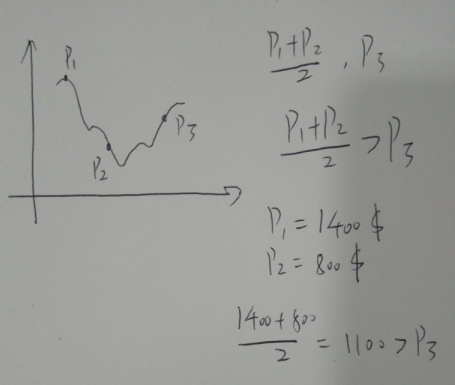 P₁
P₂
P₃
P₁+P₂/2 , P₃
P₁+P₂/2 > P₃
P₁ = 1400 $
P₂ = 800 $
1400+800/2 = 1100 > P₃